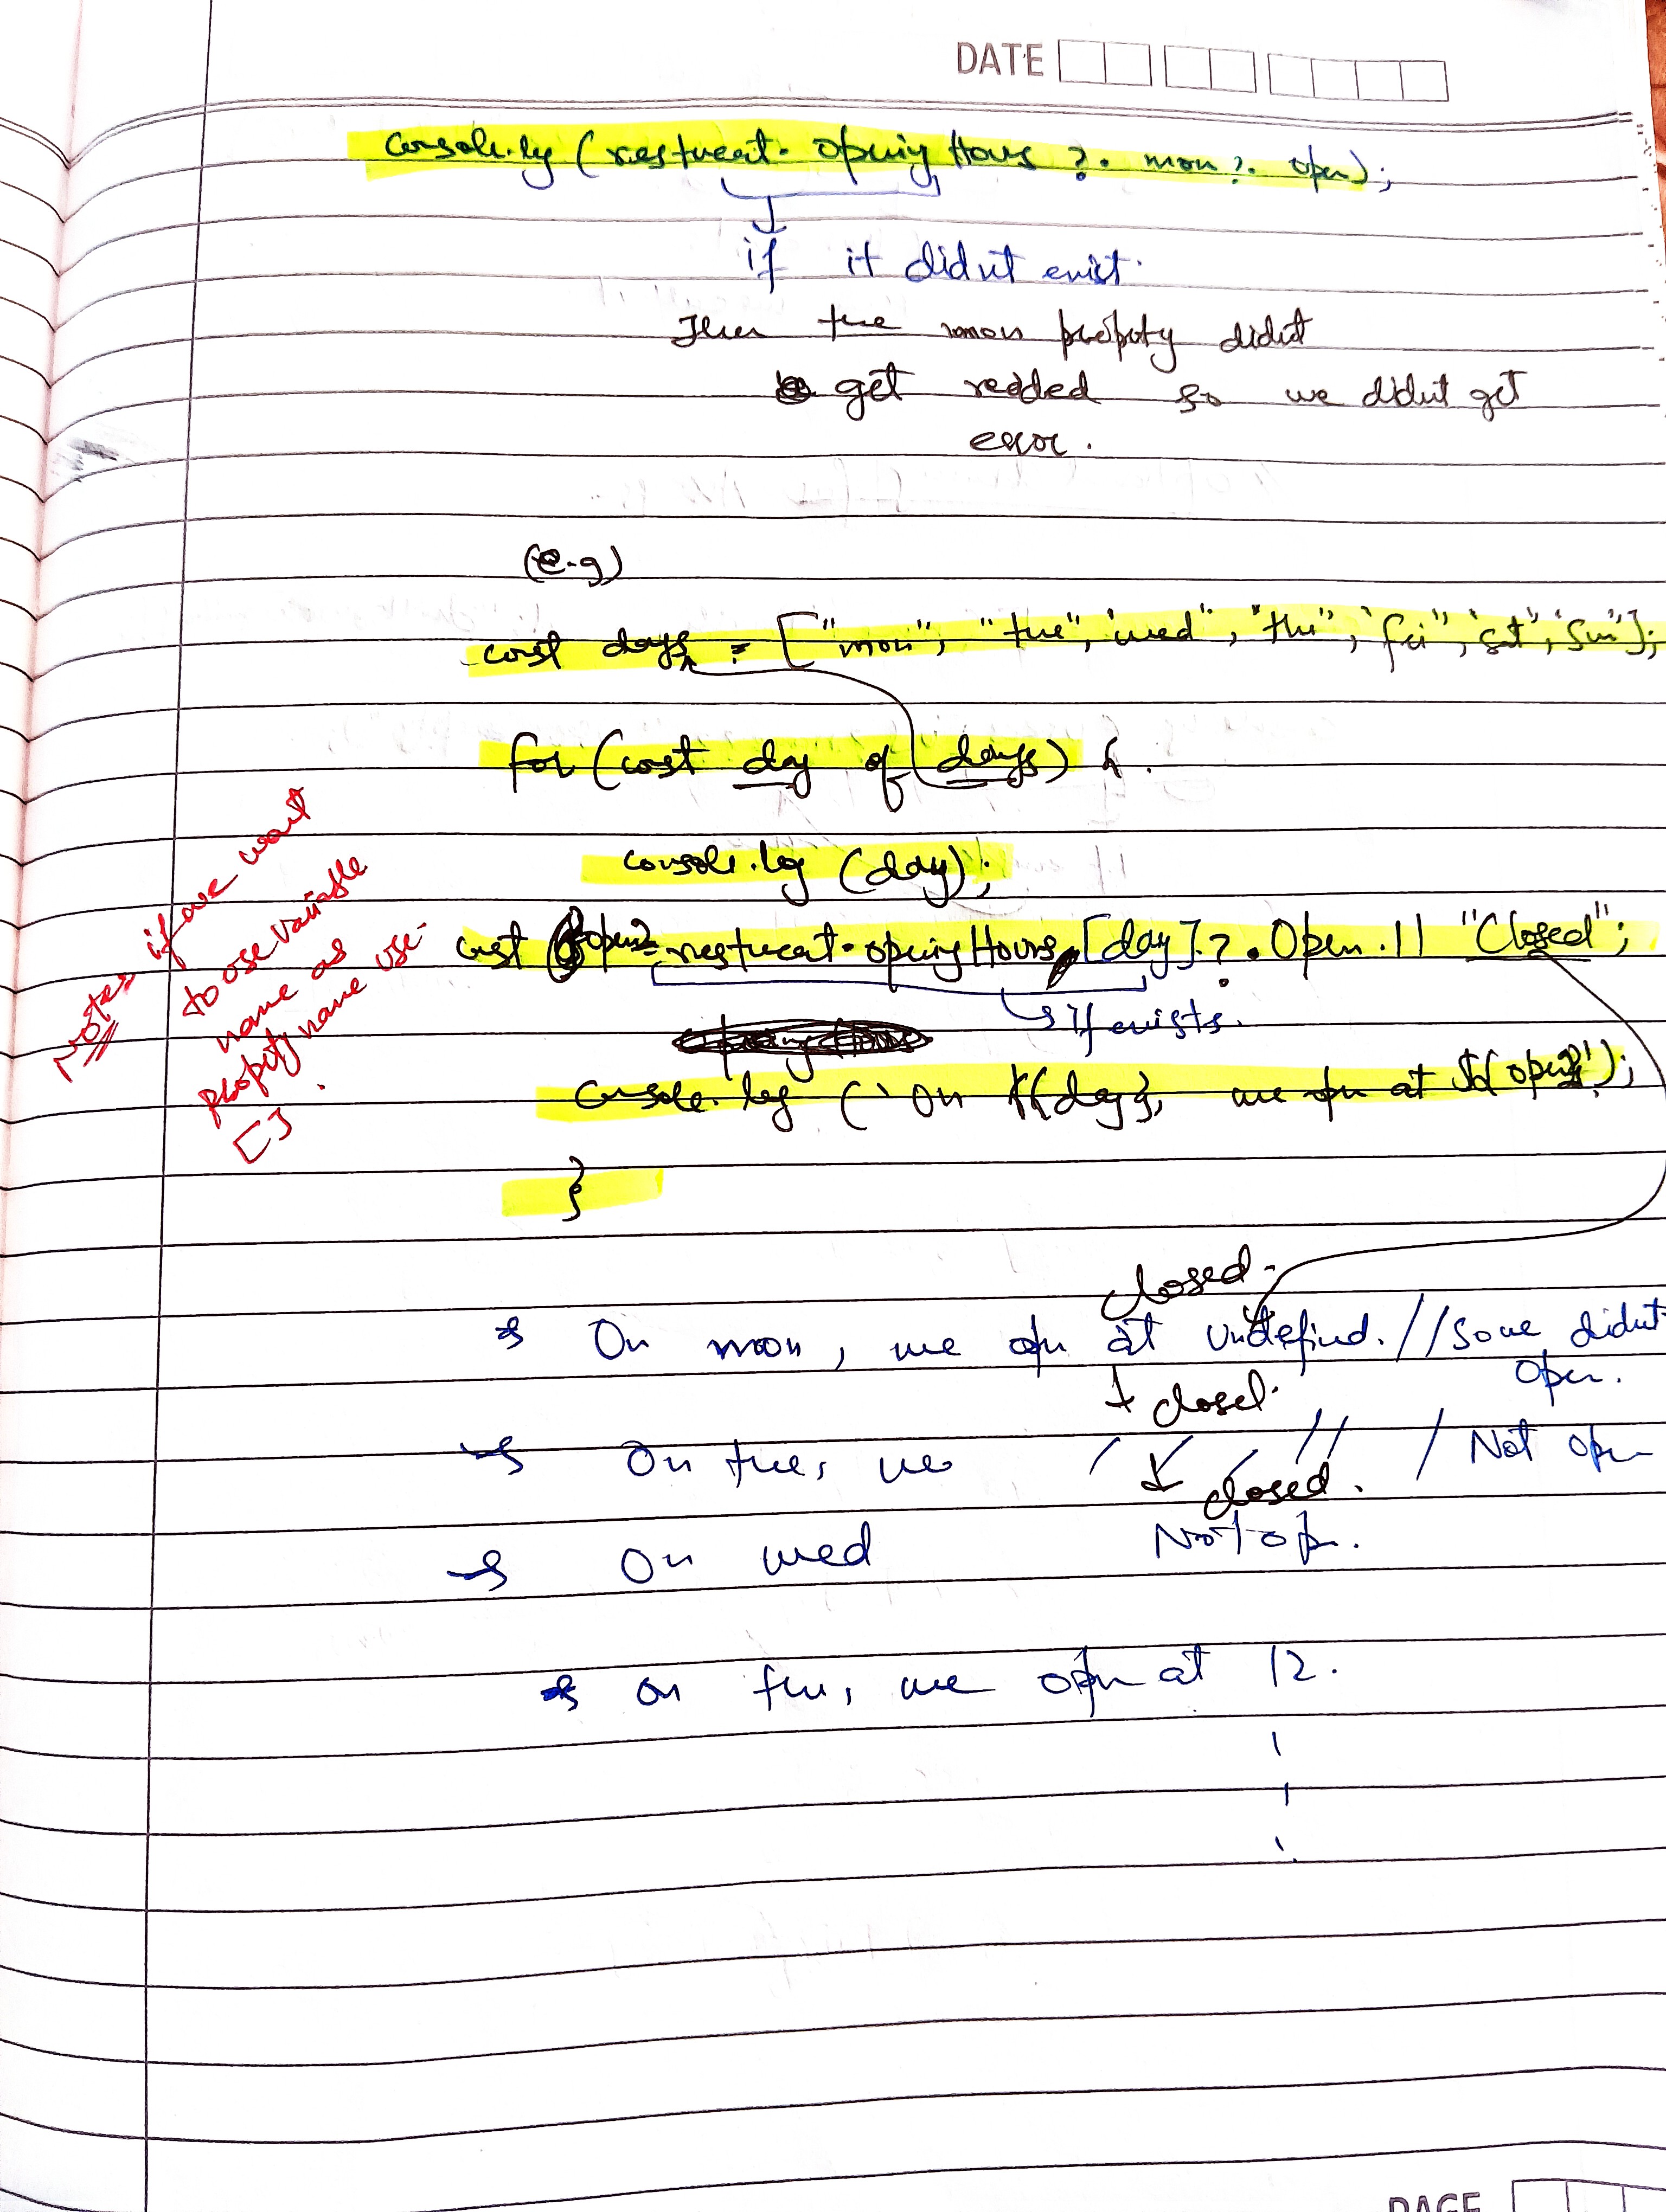 DATE
console.log (resturent. opening Hours ?. mon ?. open);
if it didn't exist.
Then the mon property didnt
get readed so we didnt get
error.
(e.g)
const days = ["mon", "tue", "wed", "thu", "fri", "sat", "sun"];
for (const day of days) {
console.log (day);
const open = resturent.openingHours [day] ?. Open || "Closed";
if exists.
console.log (`On ${day}, we open at ${open}`);
}
Notes if we want
to use variable
name as
property name use
[ ].
closed.
On mon, we opn at undefined. // Some didnt
open.
closed.
On tue, we / // / Not opn
closed.
On wed Not opn.
on thu, we opn at 12.
PAGE